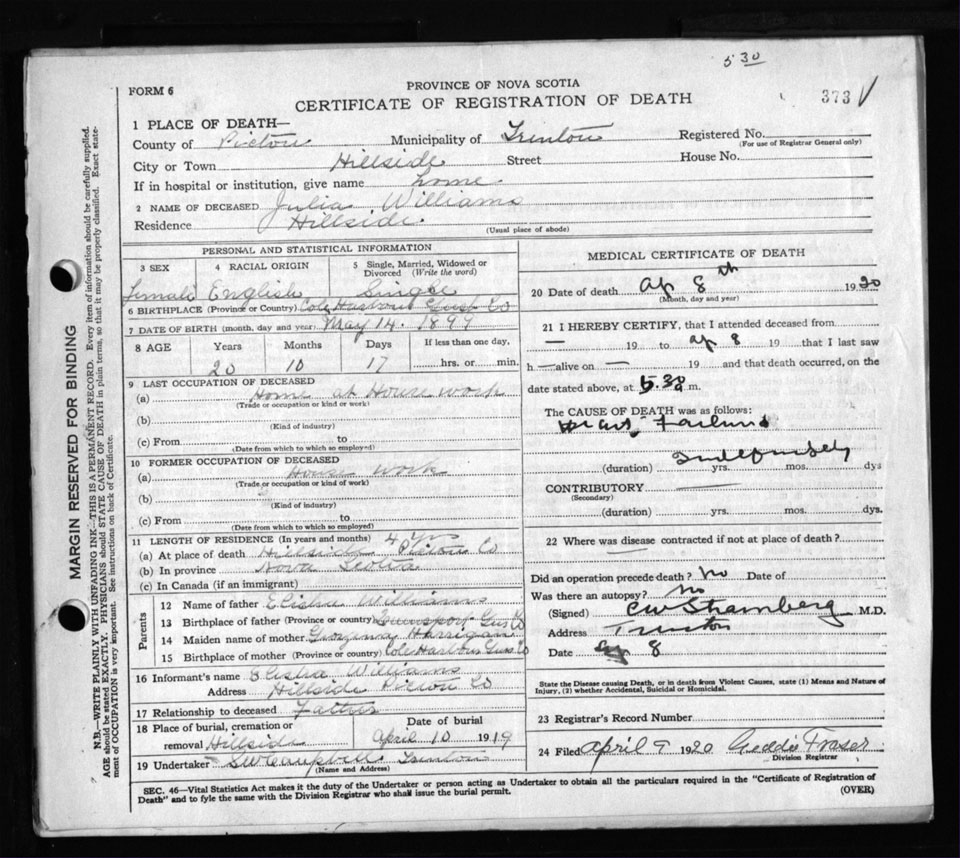 5 30
PROVINCE OF NOVA SCOTIA
FORM 6
CERTIFICATE OF REGISTRATION OF DEATH
373
1 PLACE OF DEATH—
County of Pictou Municipality of Trenton Registered No.
(For use of Registrar General only)
City or Town Hillside Street House No.
If in hospital or institution, give name home
2 NAME OF DECEASED Julia Williams
Residence Hillside
(Usual place of abode)
PERSONAL AND STATISTICAL INFORMATION
3 SEX 4 RACIAL ORIGIN 5 Single, Married, Widowed or Divorced (Write the word)
Female English Single
6 BIRTHPLACE (Province or Country) Cole Harbour Guys Co
7 DATE OF BIRTH (month, day and year) May 14. 1899
8 AGE Years Months Days If less than one day,
20 10 17 hrs. or min.
9 LAST OCCUPATION OF DECEASED
(a) Home at House work
(Trade or occupation or kind of work)
(b)
(Kind of industry)
(c) From to
(Date from which to which so employed)
10 FORMER OCCUPATION OF DECEASED
(a) House work
(Trade or occupation or kind of work)
(b)
(Kind of industry)
(c) From to
(Date from which to which so employed)
11 LENGTH OF RESIDENCE (In years and months) 4 yrs
(a) At place of death Hillside Pictou Co
(b) In province Nova Scotia
(c) In Canada (if an immigrant)
Parents
12 Name of father Elisha Williams
13 Birthplace of father (Province or country) Guys Co
14 Maiden name of mother Harrigan
15 Birthplace of mother (Province or country) Cole Harbour Guys Co
16 Informant's name Elisha Williams
Address Hillside Pictou Co
17 Relationship to deceased Father
18 Place of burial, cremation or Date of burial
removal Hillside April 10 1919
19 Undertaker Campbell Trenton
(Name and Address)
MEDICAL CERTIFICATE OF DEATH
20 Date of death Ap 8th 1920
(Month, day and year)
21 I HEREBY CERTIFY, that I attended deceased from
— 19 to Ap 8 19 that I last saw
h — alive on — 19 and that death occurred, on the
date stated above, at 5.30 m.
The CAUSE OF DEATH was as follows:
Heart Failure
Indefinitely
(duration) yrs. mos. dys
CONTRIBUTORY
(Secondary)
(duration) yrs. mos. dys.
22 Where was disease contracted if not at place of death?
Did an operation precede death? No Date of
Was there an autopsy? No
(Signed) CW Stramberg M.D.
Address Trenton
Date Ap 8
State the Disease causing Death, or in death from Violent Causes, state (1) Means and Nature of
Injury, (2) whether Accidental, Suicidal or Homicidal.
23 Registrar's Record Number
24 Filed April 9 1920 Geddie Fraser
Division Registrar
SEC. 46—Vital Statistics Act makes it the duty of the Undertaker or person acting as Undertaker to obtain all the particulars required in the "Certificate of Registration of
Death" and to fyle the same with the Division Registrar who shall issue the burial permit.
(OVER)
MARGIN RESERVED FOR BINDING
N.B.—WRITE PLAINLY WITH UNFADING INK—THIS IS A PERMANENT RECORD. Every item of information should be carefully supplied.
AGE should be stated EXACTLY. PHYSICIANS should STATE CAUSE OF DEATH in plain terms, so that it may be properly classified. Exact statement
of OCCUPATION is very important. See instructions on back of Certificate.